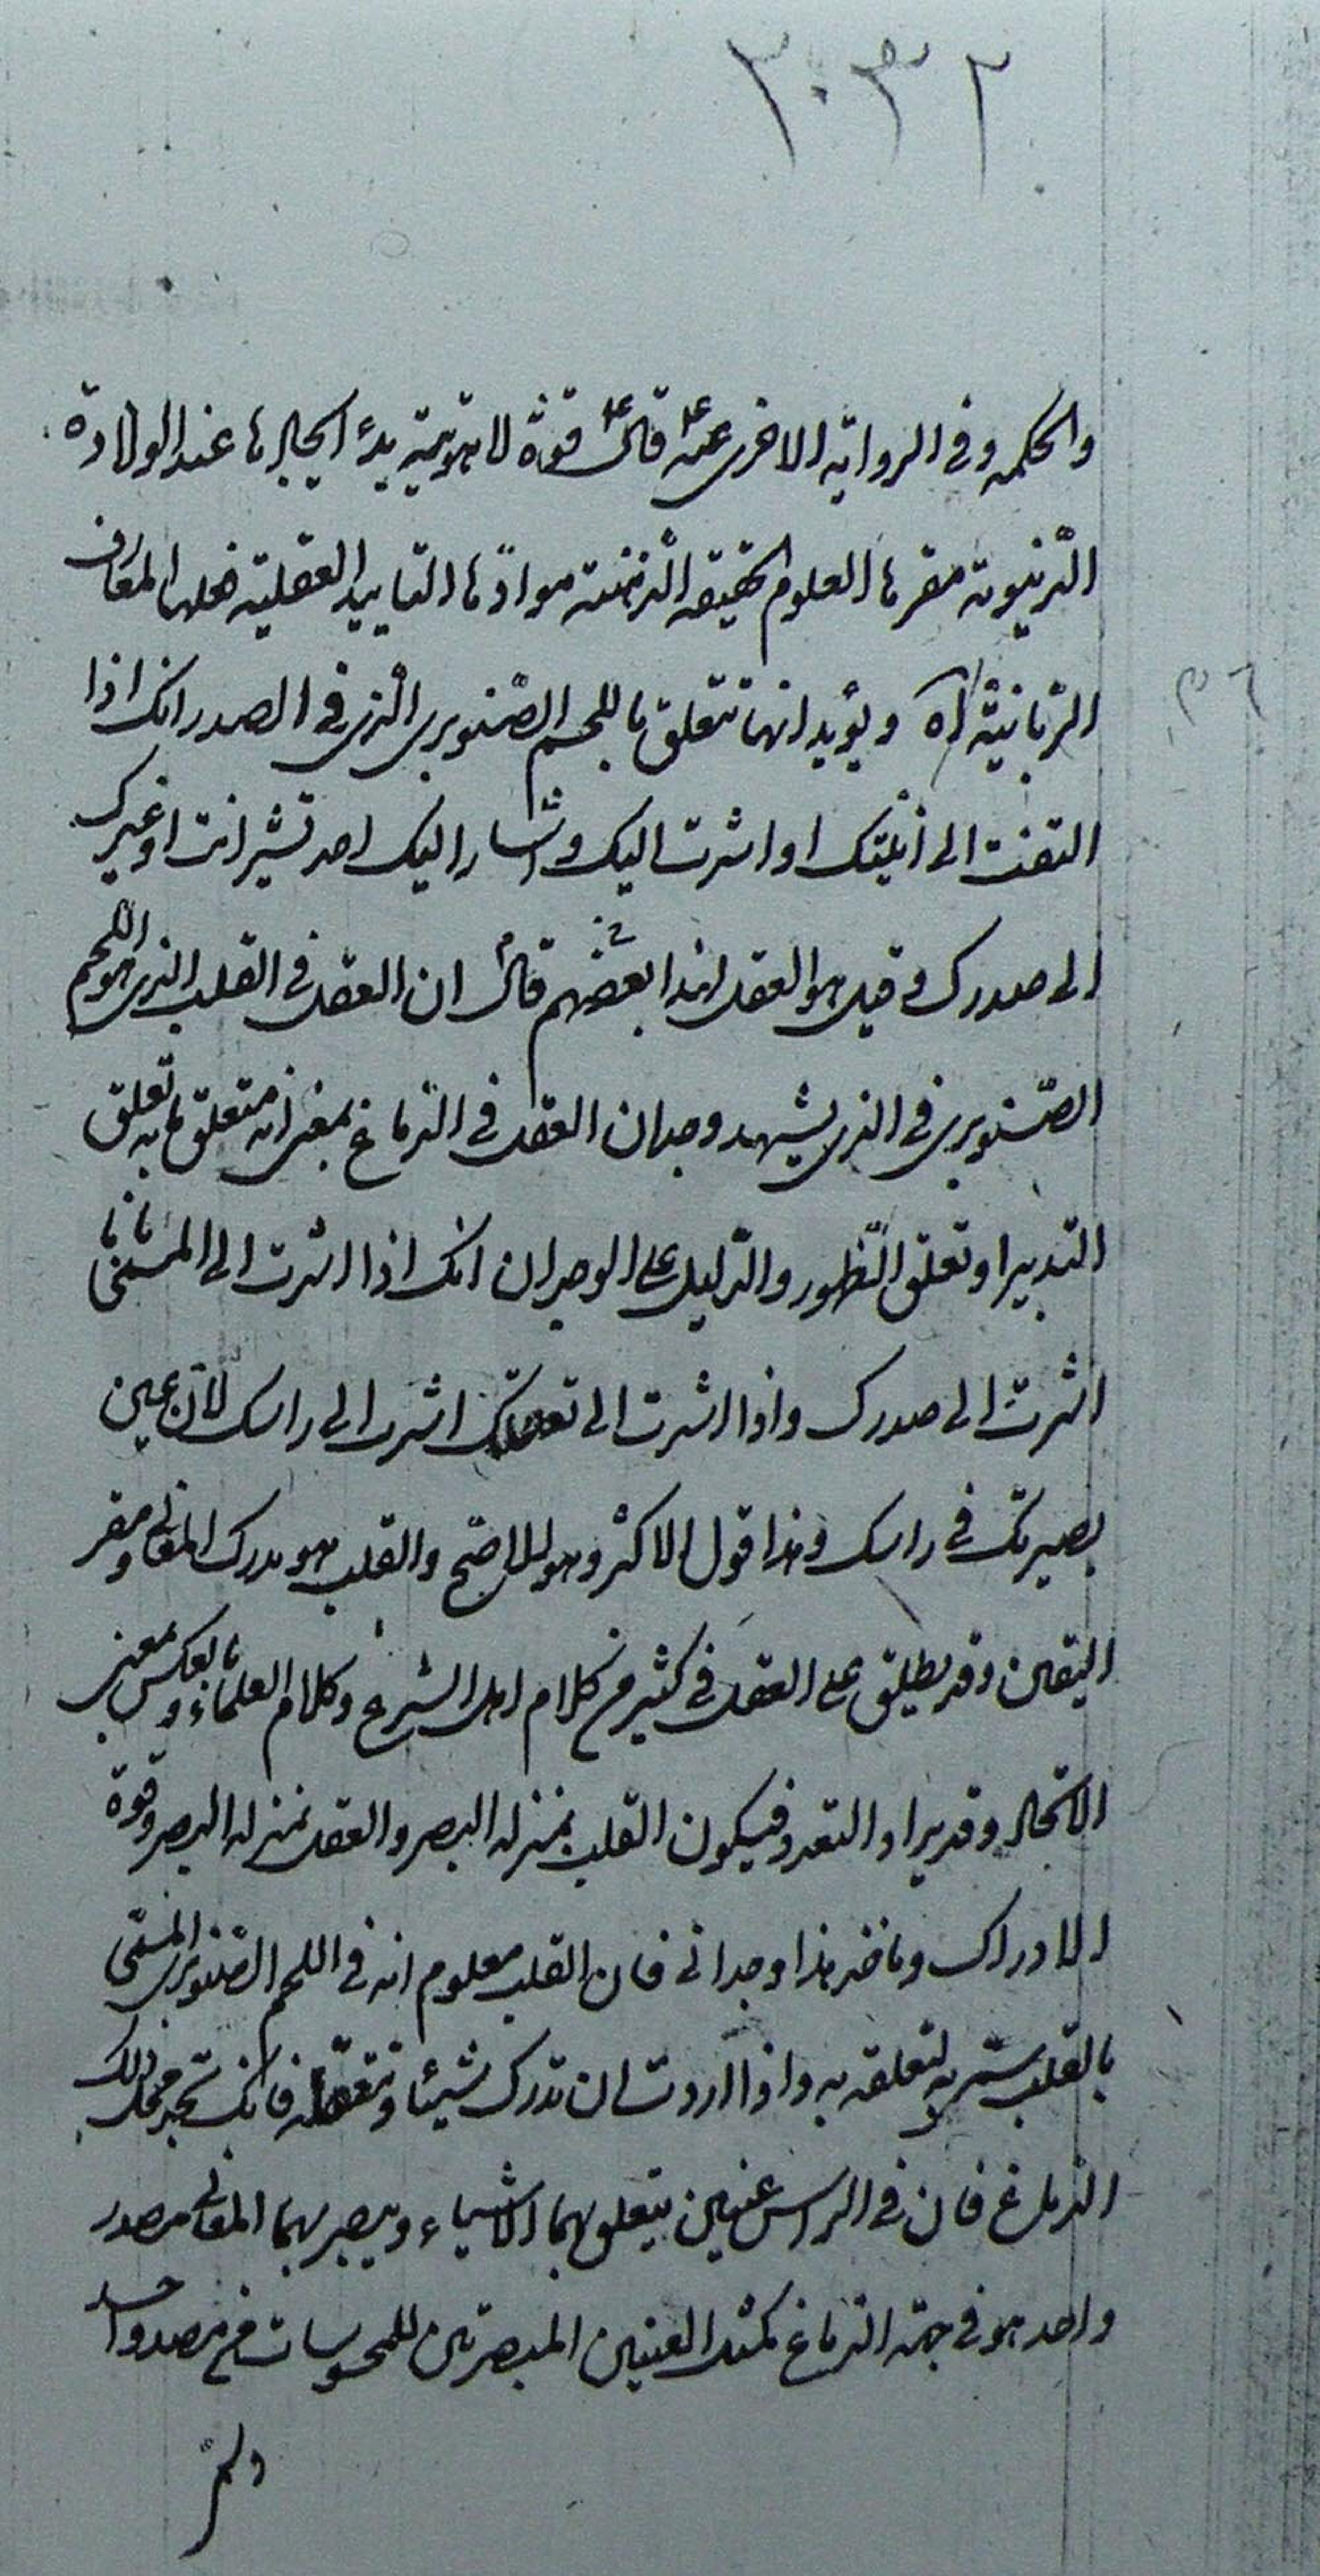 ٢٠٣٢
والحكمه وفى الروايه الاخرى عنه ع قال ع قوة لاهوتية بدء ايجادها عند الولادة
الدنيوية مقرها العلوم الحقيقه الذهنية موادّها التاييد العقلية فعلها المعارف
الربانية اه ويؤيد انها تتعلق باللحم الصّنوبرى الذى فى الصدر انك اذا
التفت الى انيتك او اشرت اليك واشار اليك احد تشير انت او غيرك
الى صدرك وقيل هو العقل لهذا بعضهم قال ان العقل فى القلب الذى هو اللحم
الصّنوبرى فى الذى يشهد وجدان العقل فى الدماغ بمعنى انه متعلق به تعلق
التدبير او تعلق الظهور والدليل على الوجدان انك اذا اشرت الى المسمّى بانا
اشرت الى صدرك واذا اشرت الى تعقلك اشرت الى راسك لان عين
بصيرتك فى راسك وهذا قول الاكثر وهو الاصّح والقلب هو مدرك المعانى ومقر
اليقين وقد يطلق على العقل فى كثير من كلام اهل الشرع وكلام العلماء وبالعكس بمعنى
الاتحاد وقد يراد التعدد فيكون القلب بمنزله البصر والعقل بمنزله البصر وقوة
الادراك وما ضر هذا وجدانى فان القلب معلوم انه فى اللحم الصّنوبرى المسمّى
بالقلب ستر به لتعلقه به واذا اردت ان تدرك شيئا وتتعقله فانك تجد محل ذلك
الدماغ فان فى الراس عينين يتعلق بهما الاشياء ويبصر بهما المعانى مصدر
واحد هو فى جهة الدماغ كمثل العينين المبصرتين للمحسوسات من مصدر واحد